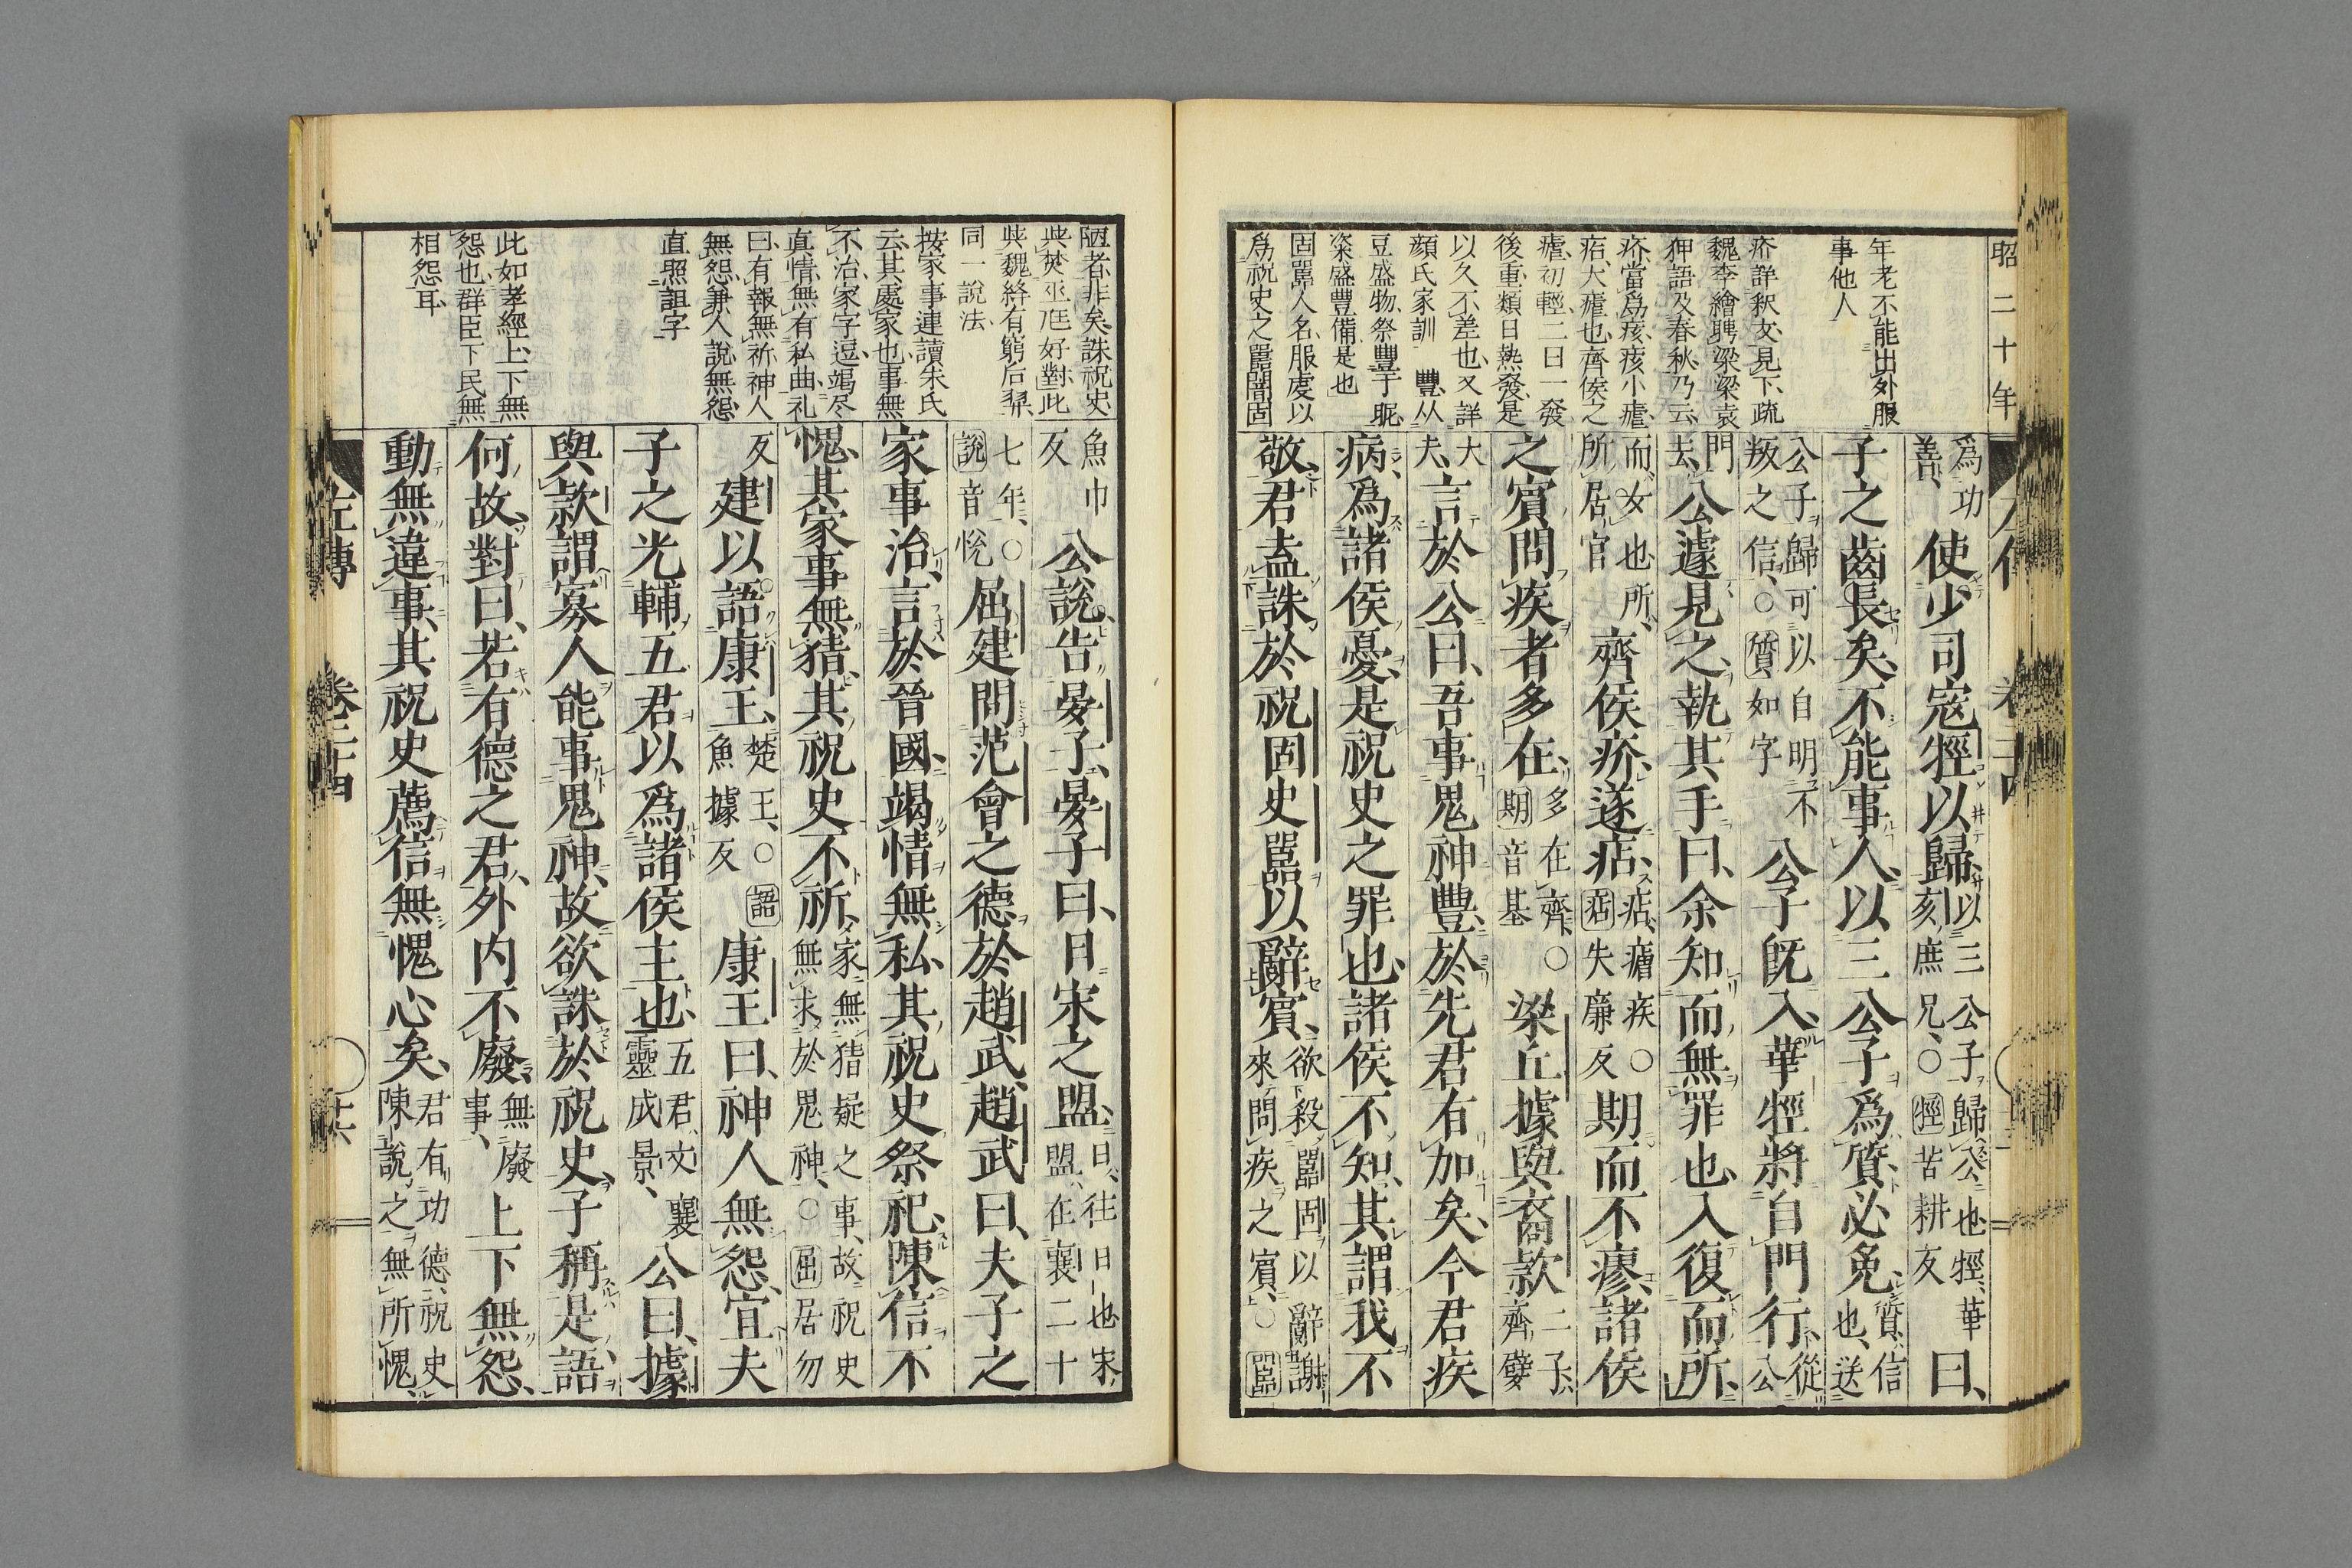 昭二十年
年老不能出外服
事他人
疥詳釈文見下疏
魏李繪聘梁梁袁
狎語及春秋乃云
疥當爲痎痎小瘧
痁大瘧也齊侯之
瘧初輕二日一發
後重類日熱發是
以久不差也又詳
顔氏家訓 豐从
豆盛物祭豐于昵
粢盛豐備是也
固嚚人名服虔以
爲祝史之嚚闇固
爲功
善、使少司寇牼以歸、以三公子歸公也牼、華
亥、庶兄、○牼苦耕反曰、
子之齒長矣、不能事人、以三公子爲質、必免、質、信
也、送
公子歸可以自明、不
叛之信、○質如字公子既入、華牼將自門行、從
公
門
去、公遽見之、執其手曰、余知而無罪也、入復而所、
而、女也、所、
所居官齊侯疥、遂痁、痁、瘧疾○
痁失廉反期而不瘳、諸侯
之賓問疾者多在、多在齊、○
期音基梁丘據與裔款二子、
齊嬖
大
夫、言於公曰、吾事鬼神豐、於先君有加矣、今君疾
病、爲諸侯憂、是祝史之罪也、諸侯不知、其謂我不
敬、君盍誅於祝固史嚚以辭賓、欲殺嚚固以辭謝
來問疾之賓、○嚚
陋者非矣誅祝史
与焚巫尫好對此
与魏絳有窮后羿
同一說法
按家事連讀朱氏
云其處家也事無
不治家字逗竭尽
真情無有私曲礼
曰有報無祈神人
無怨兼人說無怨
直照詛字
此如孝經上下無
怨也群臣下民無
相怨耳
魚巾
反公說告晏子、晏子曰、日宋之盟、日、往日也、宋
盟、在襄二十
七年、○
說音悅屈建問范會之德於趙武、趙武曰、夫子之
家事治、言於晉國、竭情無私、其祝史祭祀、陳信不
愧、其家事無猜、其祝史不祈、家無猜疑之事、故祝史
無求於鬼神、○屈居勿
反建以語康王、楚王、○語
魚據反康王曰、神人無怨、宜夫
子之光輔五君以爲諸侯主也、五君、文襄
靈成景、公曰、據
與款謂寡人能事鬼神、故欲誅於祝史、子稱是語、
何故、對曰、若有德之君、外内不廢、無廢
事、上下無怨、
動無違事、其祝史薦信無愧心矣、君有功德、祝史
陳說之無所愧、
左傳 卷二十四 十六